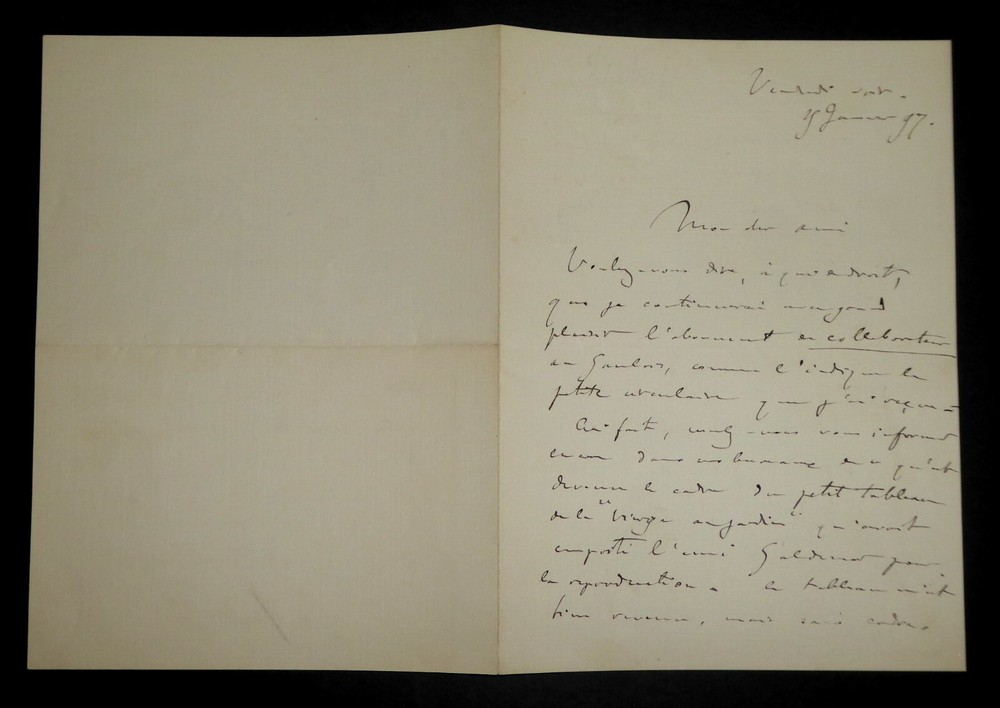 Vendredi soir.
15 Janvier 97.
Mon cher ami
Voulez-vous dire, à qui de droit,
que je continuerai avec grand
plaisir l'abonnement de collaborateur
au Gaulois, comme l'indique la
petite circulaire que j'ai reçue =
Ceci fait, voulez-vous vous informer
encore dans vos bureaux de ce qu'est
devenu le cadre du petit tableau
de la "Vierge au jardin" qu'avait
emporté l'ami pour
la reproduction. Le tableau m'est
bien revenu, mais sans cadre.